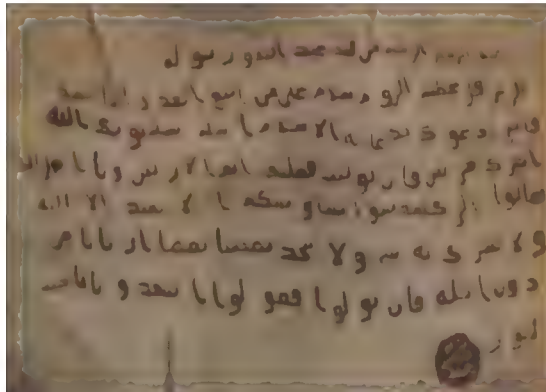 محمد عبد الله ورسوله
هرقل عظيم الروم سلام على من اتبع الهدى اما بعد
فانى ادعوك بدعاية الاسلام اسلم تسلم يؤتك الله
اجرك مرتين فان توليت فعليك اثم الاريسين ويا اهل
تعالوا الى كلمة سواء بيننا وبينكم ان لا نعبد الا الله
ولا نشرك به شيئا ولا يتخذ بعضنا بعضا اربابا من
دون الله فان تولوا فقولوا اشهدوا بانا مسـ
لمون